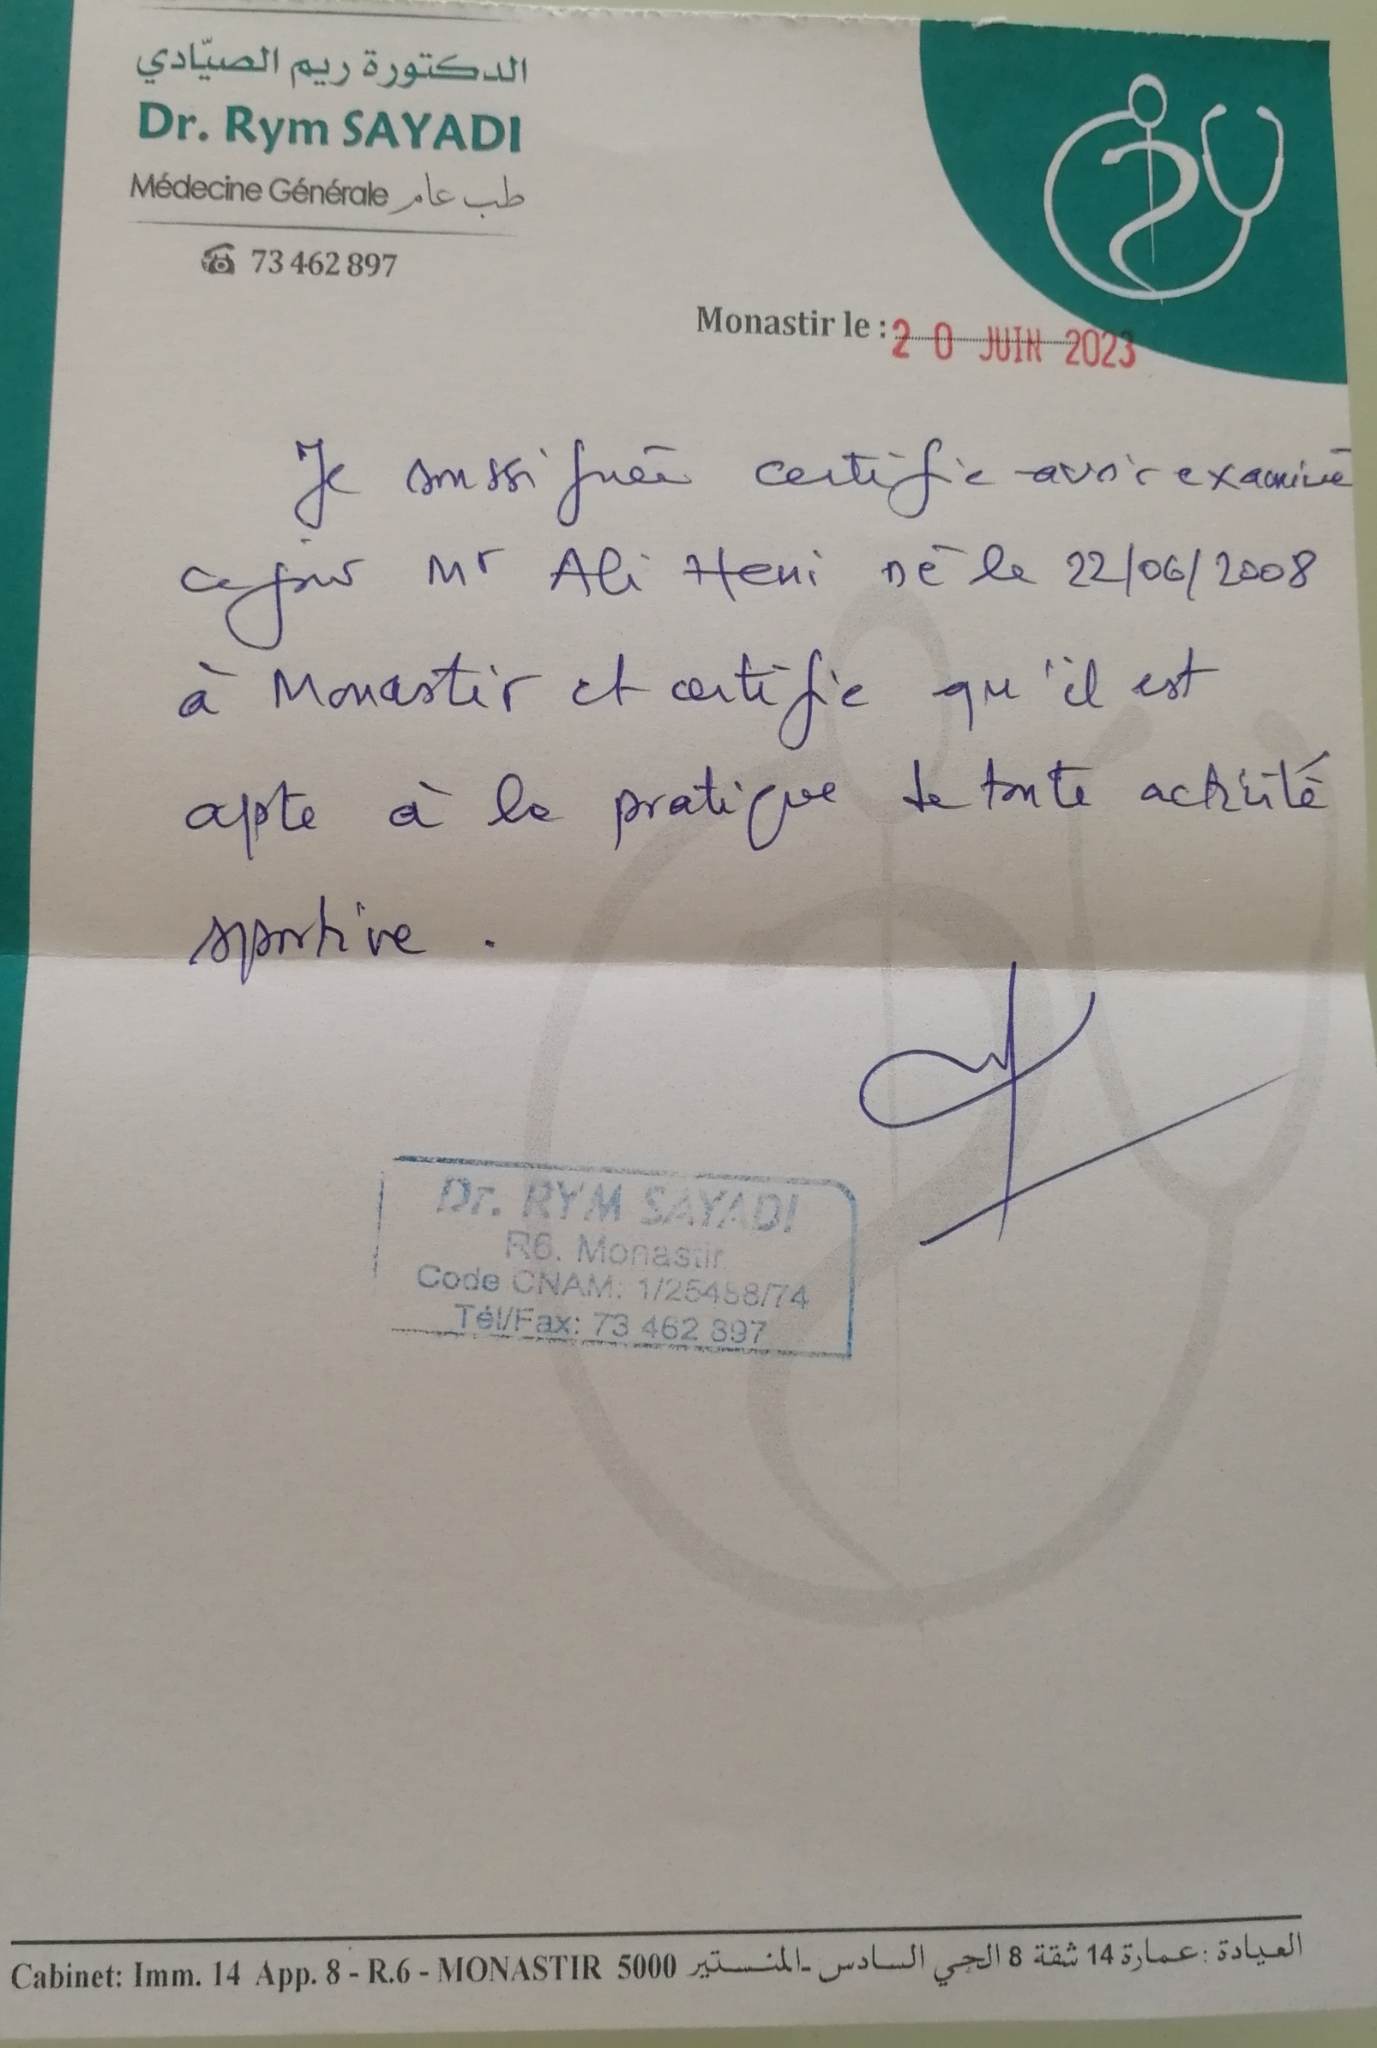 الدكتورة ريم الصيّادي
Dr. Rym SAYADI
Médecine Générale طب عام
☎ 73 462 897
Monastir le : 20 JUIN 2023
Je soussignée certifie avoir examiné
ce jour Mr Ali Heni né le 22/06/2008
à Monastir et certifie qu'il est
apte à la pratique de toute activité
sportive.
Dr. RYM SAYADI
R6. Monastir
Code CNAM: 1/25458/74
Tél/Fax: 73 462 897
Cabinet: Imm. 14 App. 8 - R.6 - MONASTIR 5000 العيادة : عمارة 14 شقة 8 الحي السادس -المنستير